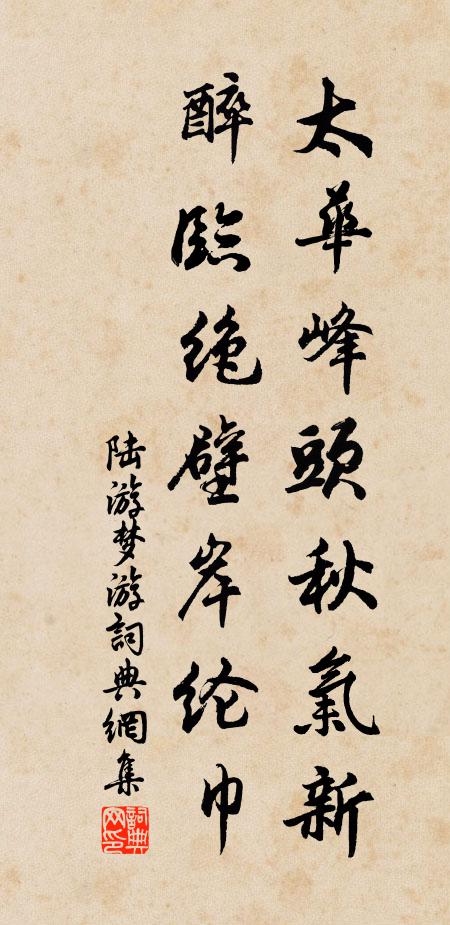 太華峰頭秋氣新
醉臨绝壁岸纶巾
陆游梦游詞典網集
詞典
网印